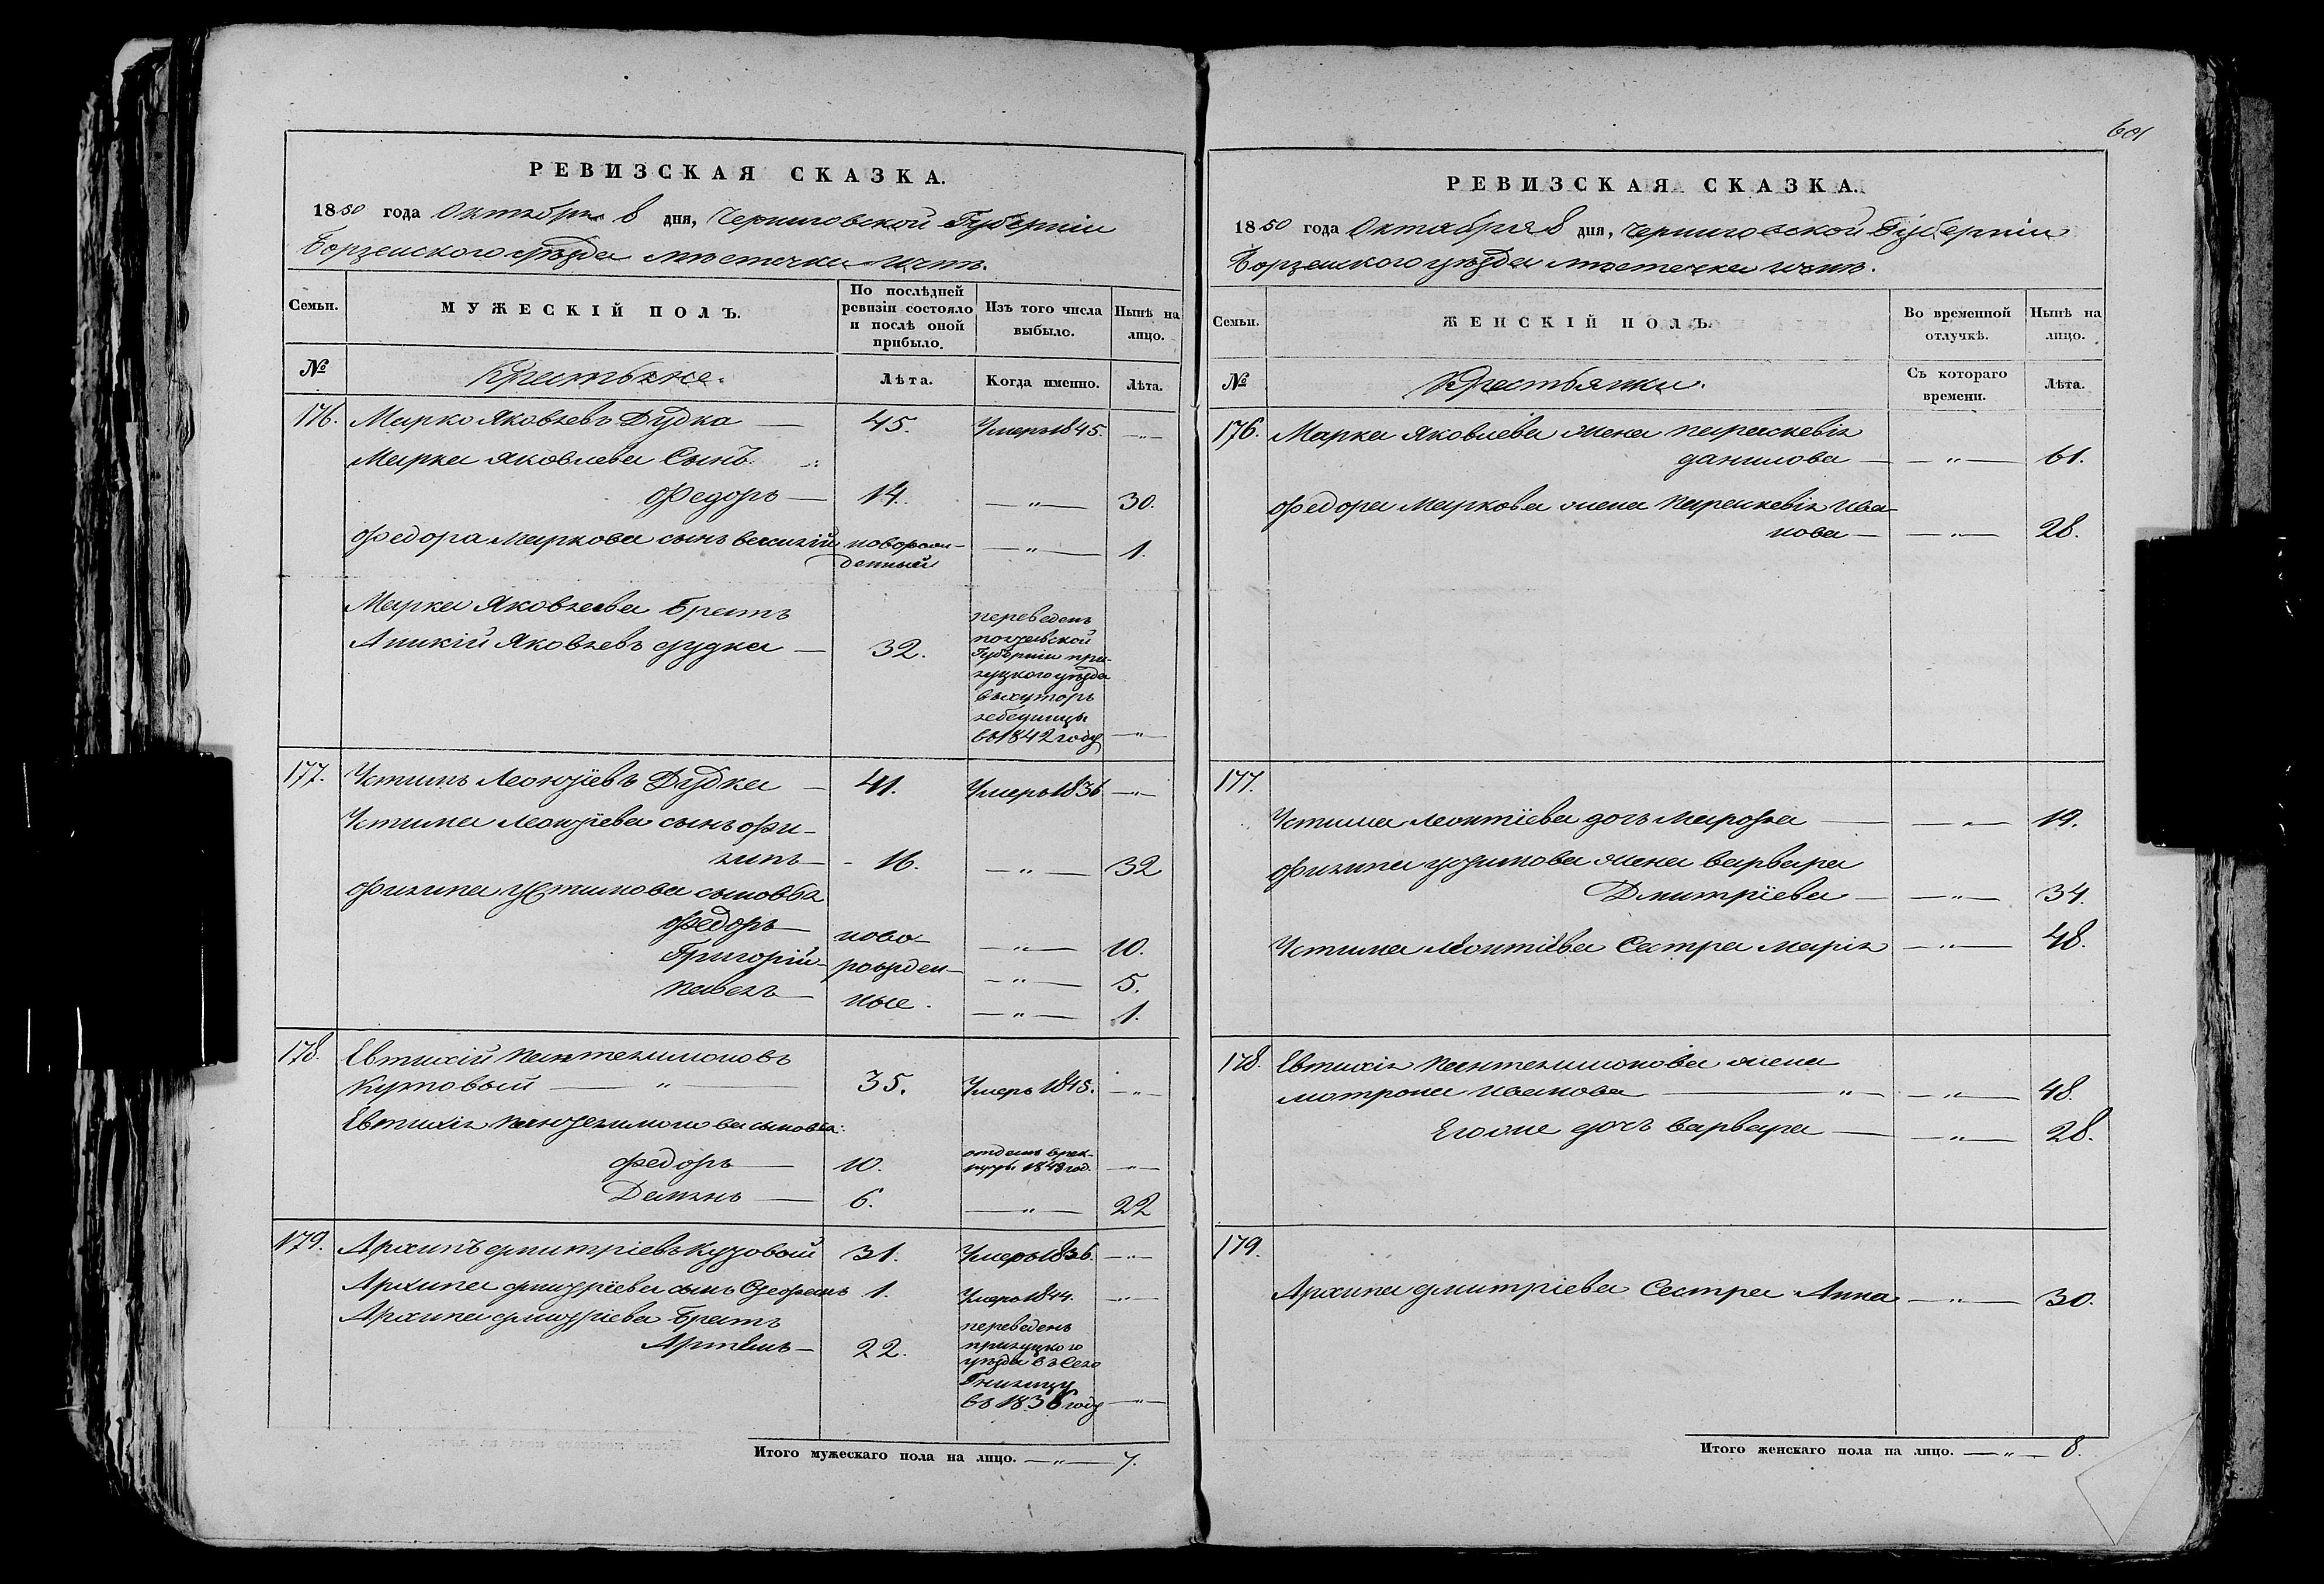 601
РЕВИЗСКАЯ СКАЗКА.
1850 года Октября 8 дня, Черниговской Губерніи
Борзенского уѣзда мѣстечка Ични.
Семьи.
МУЖЕСКІЙ ПОЛЪ.
По послѣдней ревизіи состояло и послѣ оной прибыло.
Изъ того числа выбыло.
Нынѣ на лицо.
№
Крестьяне.
Лѣта.
Когда именно.
Лѣта.
176. Марко Яковлевъ Дудка — 45. Умеръ 1845. —"—
Марка Яковлева Сынъ:
Федоръ — 14. —"— 30.
Федора Маркова сынъ Василій новорож-
денный —"— 1.
Марка Яковлева братъ
Аникій Яковлевъ дудка — 32.
переведенъ
полтавской
Губерніи при-
луцкого уѣзда
въ хуторъ
лебединцы
въ 1842 году —"—
177. Устимъ Леонтіевъ Дудка — 41. Умеръ 1836 —"—
Устима Леонтіева сынъ Фи-
липъ — 16. —"— 32
Филипа Устимова сыновья
Федоръ — ново- —"— 10.
Григорій — рожден- —"— 5.
Павелъ — ные. —"— 1.
178. Евтихій Пантелимоновъ
Кутовый —"— 35. Умеръ 1845. —"—
Евтихія Пантелимонова сыновья:
Федоръ — 10. отданъ в рек-
руты 1848 год. —"—
Демянъ — 6. —"— 22
179. Архипъ дмитріевъ Кутовый 31. Умеръ 1836. —"—
Архипа дмитріева сынъ Стефанъ 1. Умеръ 1844. —"—
Архипа дмитріева братъ
Артемъ — 22.
переведенъ
прилуцкого
уѣзда въ Село
Гнилицу
въ 1836 году —"—
Итого мужескаго пола на лицо. —"— 7.
РЕВИЗСКАЯ СКАЗКА.
1850 года Октября 8 дня, Черниговской Губерніи
Борзенского уѣзда мѣстечка Ични.
Семьи.
ЖЕНСКІЙ ПОЛЪ.
Во временной отлучкѣ.
Нынѣ на лицо.
№
Крестьянки.
Съ котораго времени.
Лѣта.
176. Марка Яковлева жена параскевія
данилова — —"— 61.
Федора Маркова жена Параскевія Ива-
нова — —"— 28.
177.
Устима Леонтіева дочь Марфа — —"— 19.
Филипа устимова жена варвара
Дмитріева — —"— 34.
Устима Леонтіева Сестра Марія —"— 48.
178. Евтихія Пантелимонова жена
мотрона Иванова —"— —"— 48.
Егоже дочь варвара — —"— 28.
179.
Архипа дмитріева Сестра Анна —"— 30.
Итого женскаго пола на лицо. —"— 8.